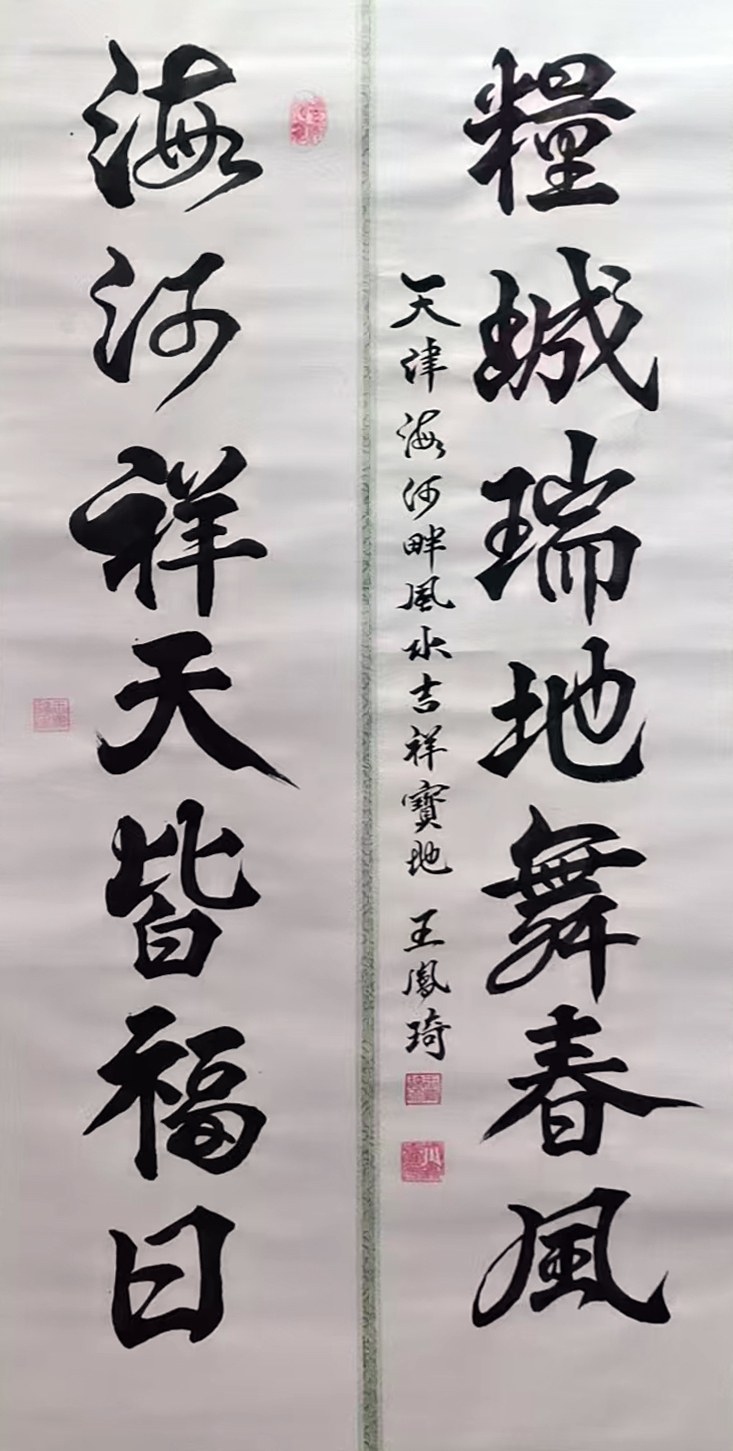 糧城瑞地舞春風
天津海河畔風水吉祥寶地 王鳳琦
海河祥天皆福日